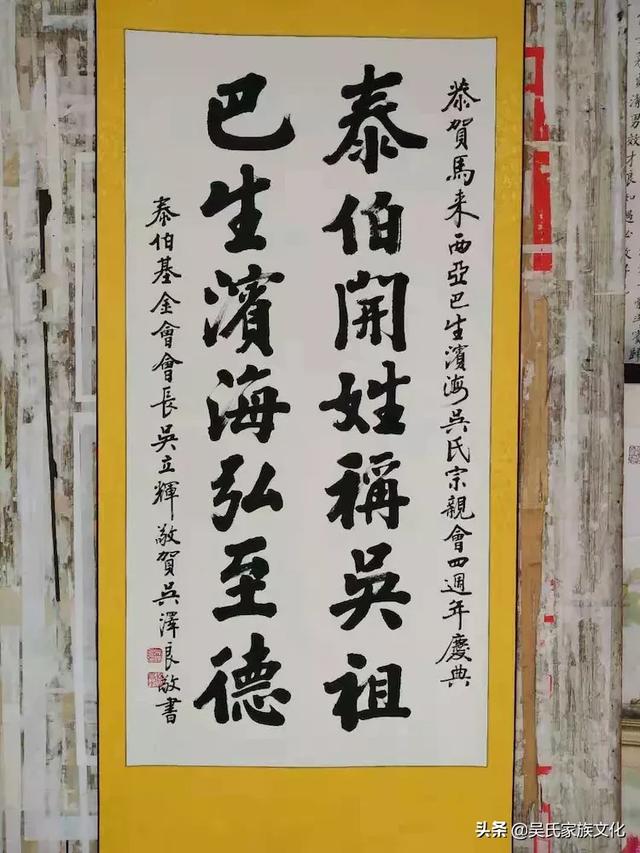 恭賀馬来西亞巴生濱海吳氏宗親會四週年慶典
泰伯開姓稱吳祖
巴生濱海弘至德
泰伯基金會會長吳立輝敬賀吳澤良敬書
头条 @吴氏家族文化